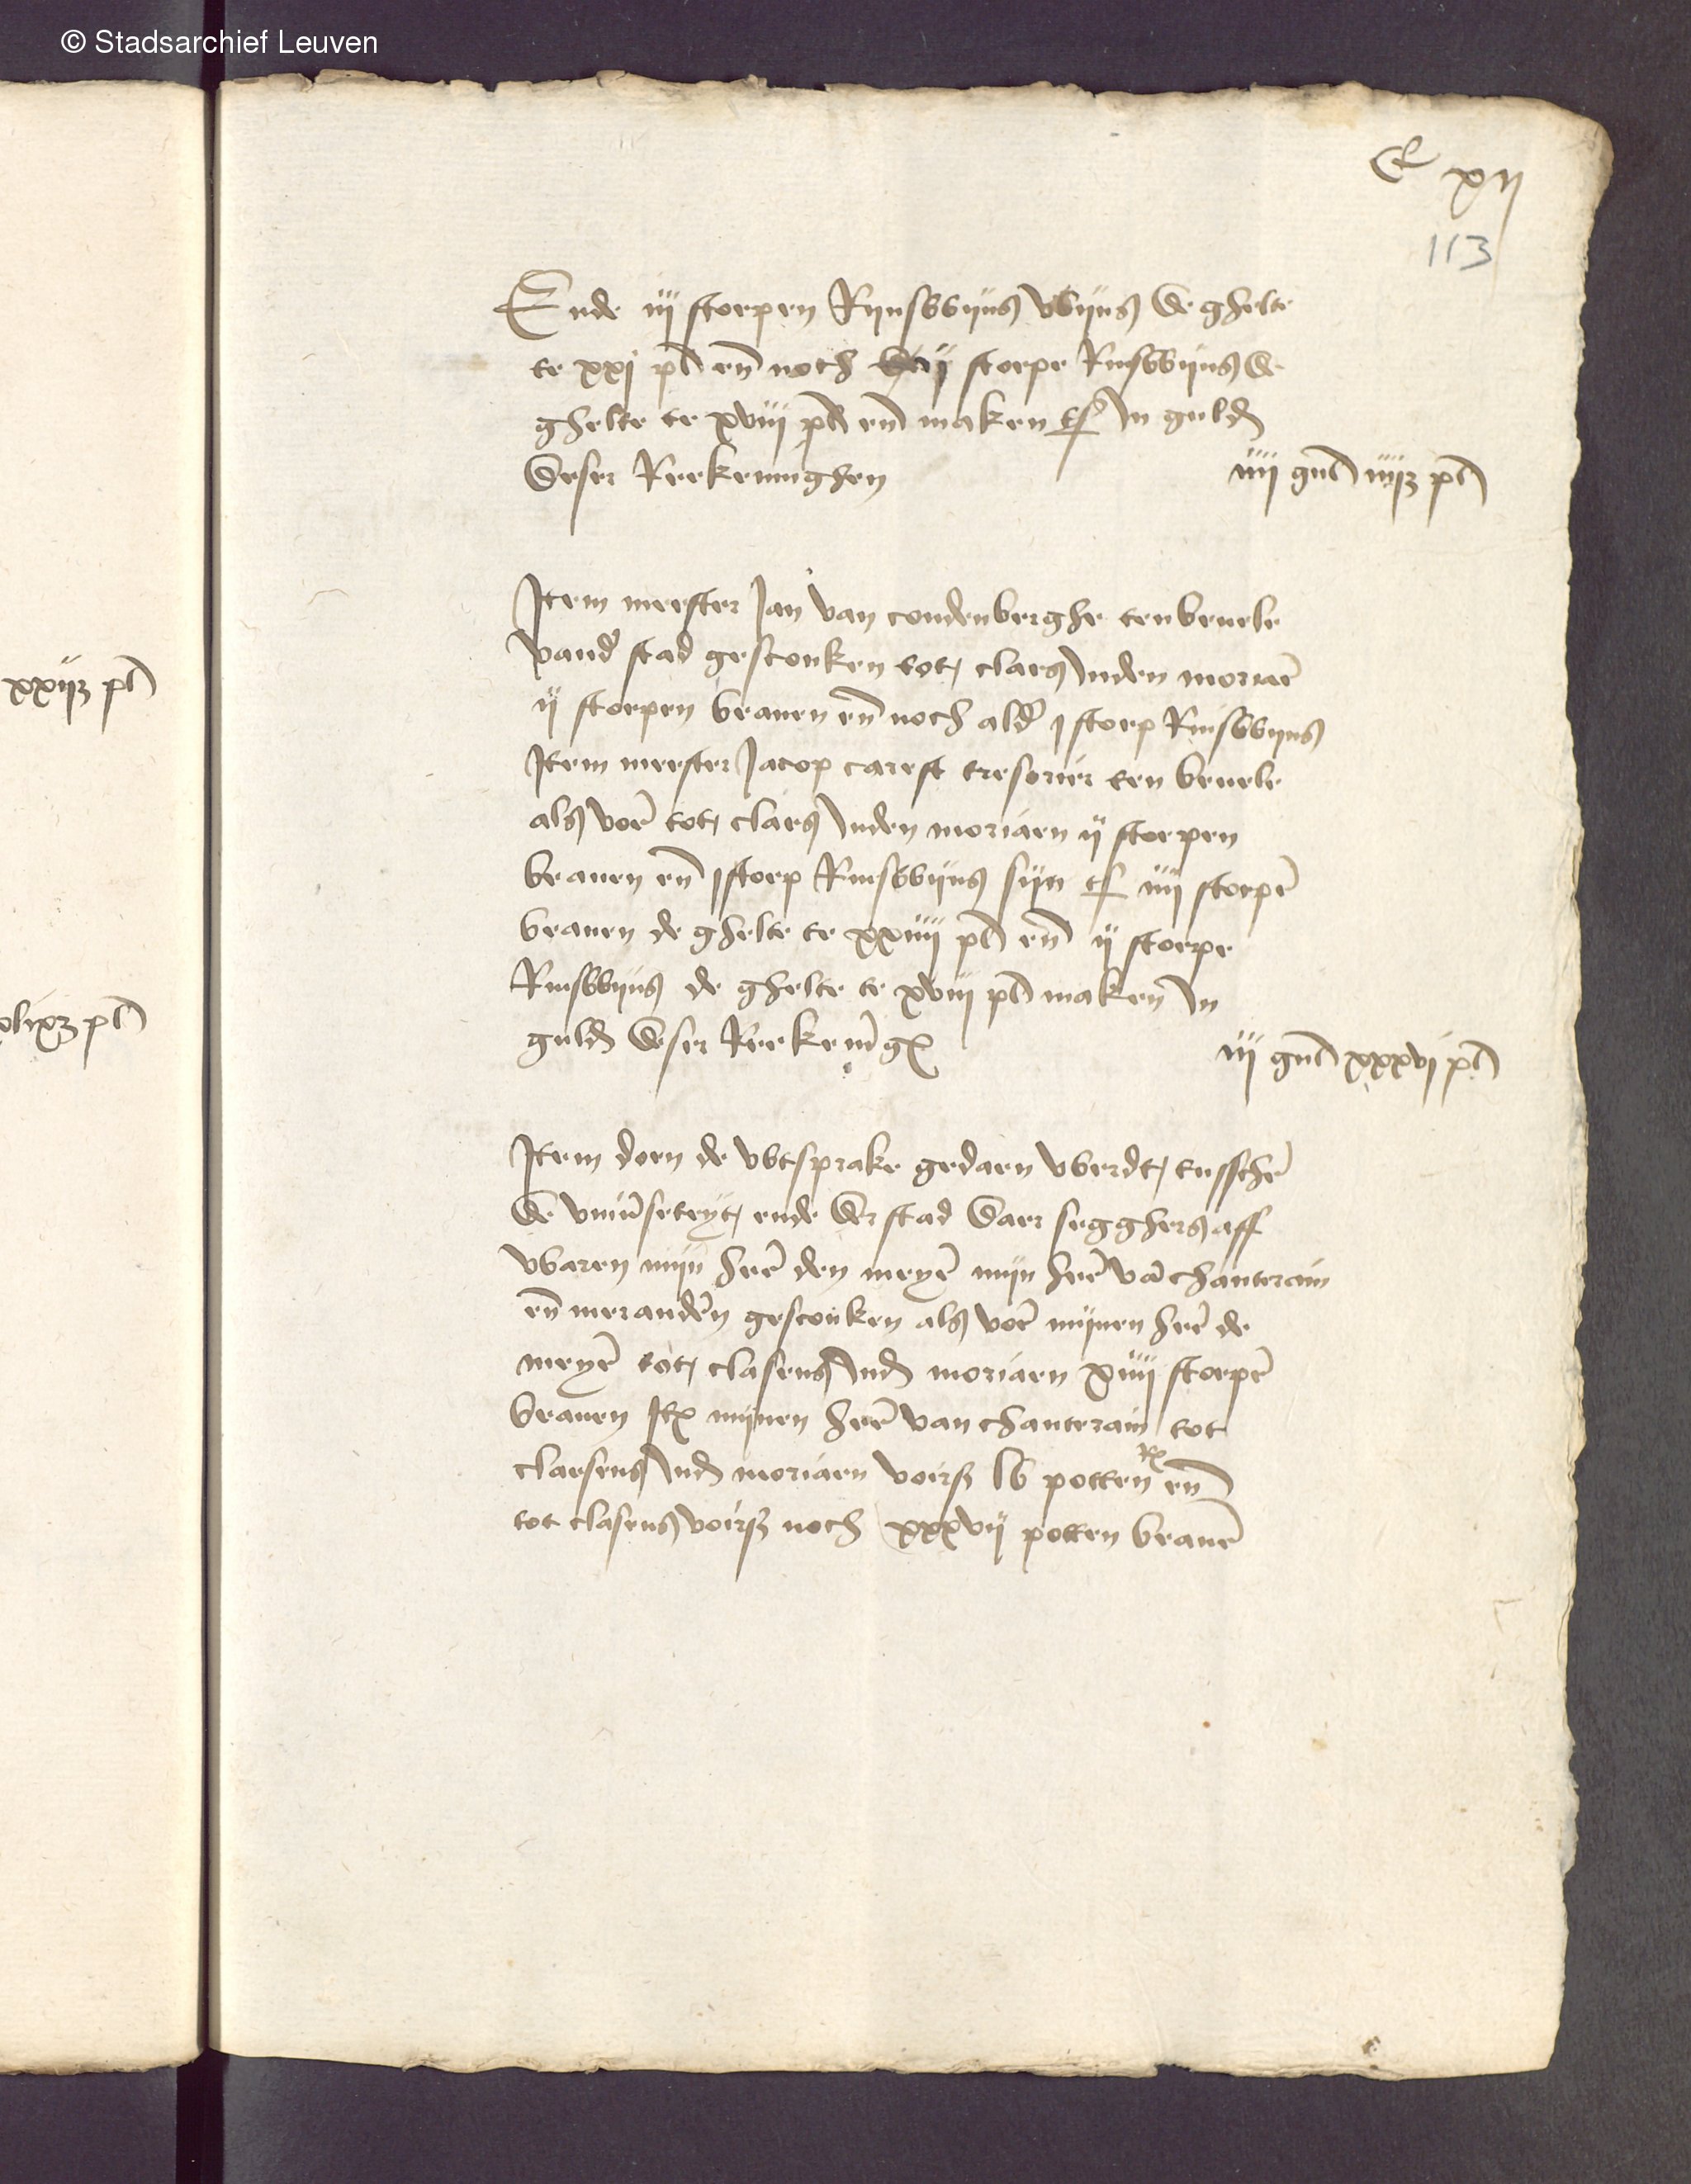 © Stadsarchief Leuven
C xij
113
Ende iij stoepen Rijnswijns wijns de ghelte
te xxj pl en noch ij stoepe Rinswijns de
ghelte te xviij pl en maken tsame In guld
deser Rekeninghen iiij gul iiijß pl
Item meester Jan van coudenberghe ten bevele
vand stad gesconken tot claes Inden moriaen
ij stoepen beanen en noch ald j stoep Rinswijns
Item meester Jacop carest tresorier ten bevele
als voer tot claes Inden moriaen ij stoepen
beanen en j stoep Rinswijns sijn ts iiij stoepen
beanen de ghelte te xxiiij pl en ij stoepe
Rinswijns de ghelte te xviij pl maken In
guld deser Rekening iij gul xxxvj pl
Item doen de wtsprake gedaen werdt tusschen
de universeteyt ende der stad daer segghers aff
waren mijn heer den meyer mijn heer van chanterain
en meer anderen gesconken als voer mijnen heer de
meyer tot clasens Inden moriaen xiiij stoepen
beanen Item mijnen heer van chanterain tot
claesens Inden moriaen voirs lv potten en
tot clasens voirs noch xxxvij potten beanen
xxijß pl
xlixß pl